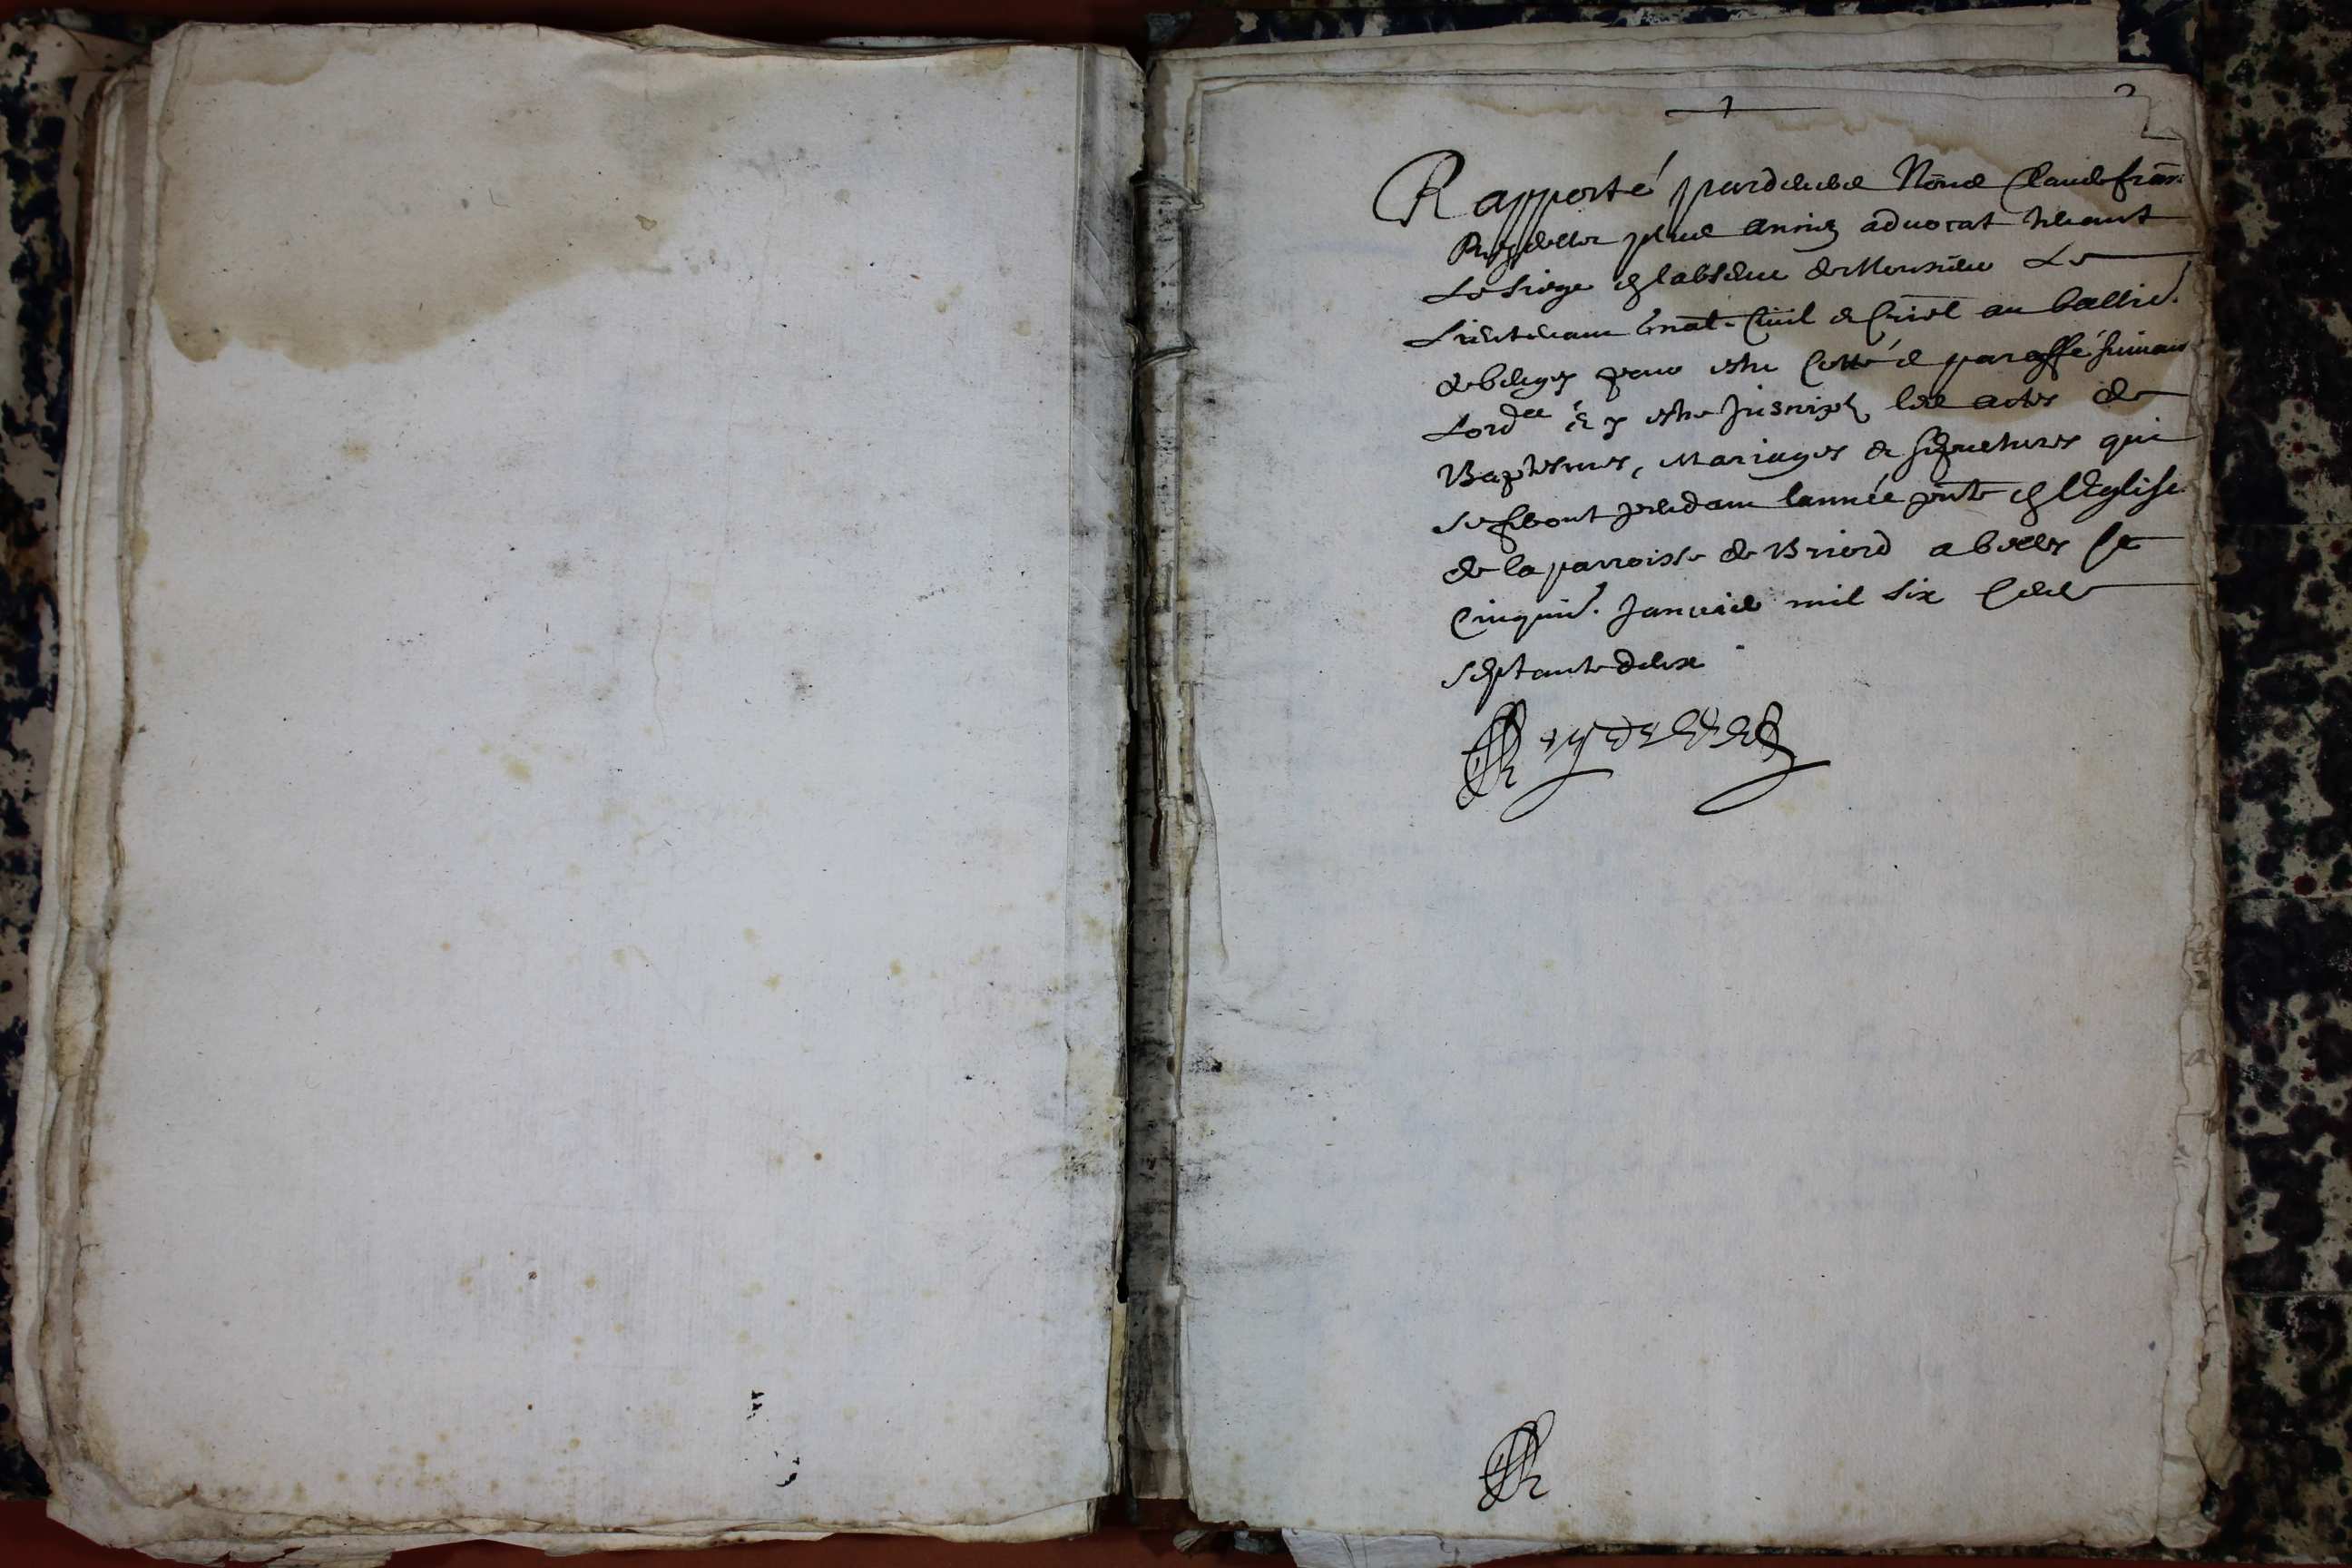 Rapporté pardevant Nous Claude fran:
plus antien advocat tenant
Le siege en labsence de Monsieur Le
Lieutenant gnal Ciuil et Criel au balliae.
de belley pour estre Cotté et paraffé suiuant
Lordce et y estre Inscript les actes de
Baptesmes, Mariages et sepultures qui
se feront pendant lannée pnte en lEglise
de la parroisse de Briord a belley le
Cinquie. Januier mil six Cent
septante deux